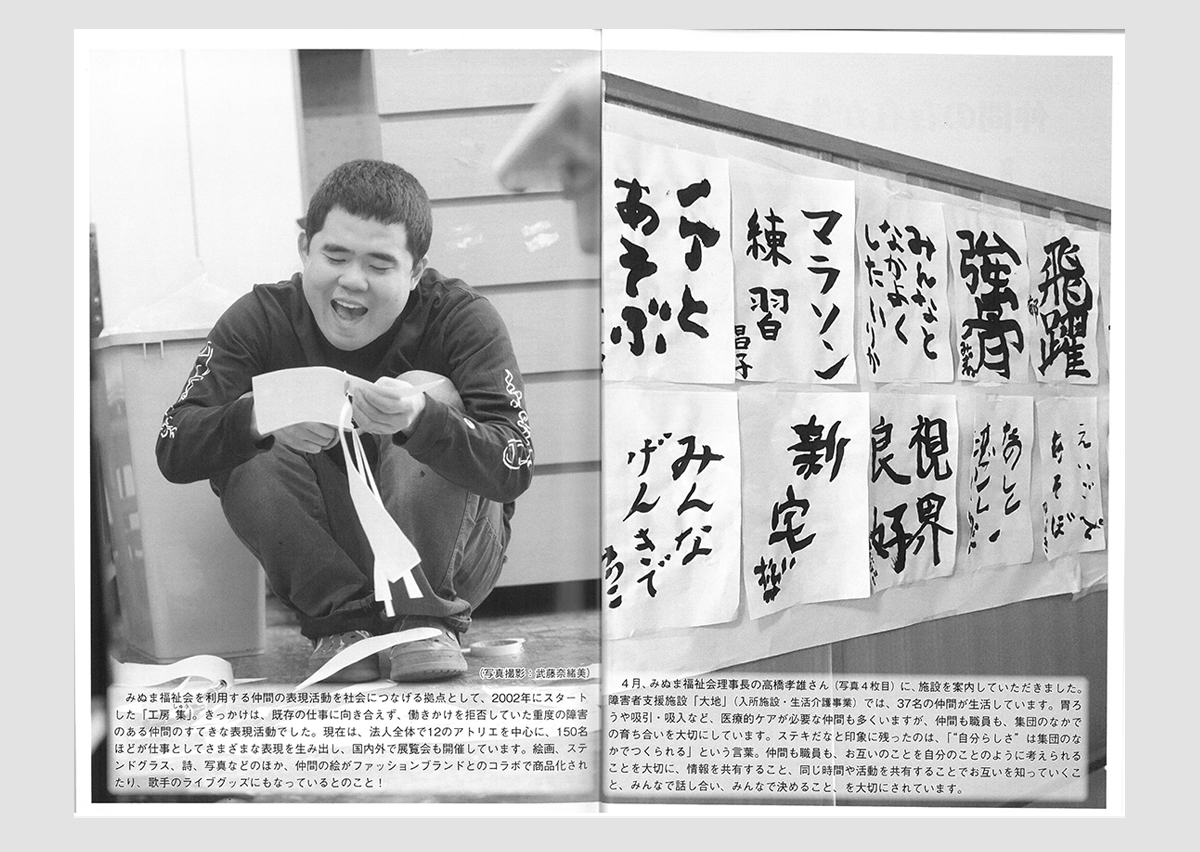 (写真撮影：武藤奈緒美)
みぬま福祉会を利用する仲間の表現活動を社会につなげる拠点として、2002年にスタート
した「工房 集」。きっかけは、既存の仕事に向き合えず、働きかけを拒否していた重度の障害
のある仲間のすてきな表現活動でした。現在は、法人全体で12のアトリエを中心に、150名
ほどが仕事としてさまざまな表現を生み出し、国内外で展覧会も開催しています。絵画、ステ
ンドグラス、詩、写真などのほか、仲間の絵がファッションブランドとのコラボで商品化され
たり、歌手のライブグッズにもなっているとのこと！
あそぶ
マラソン
練習
昌子
みんなと
なかよく
したい
飛躍
みんな
げんきで
新宅
視界
良好
えいごで
あそぼ
4月、みぬま福祉会理事長の高橋孝雄さん（写真4枚目）に、施設を案内していただきました。
障害者支援施設「大地」（入所施設・生活介護事業）では、37名の仲間が生活しています。胃ろ
うや吸引・吸入など、医療的ケアが必要な仲間も多くいますが、仲間も職員も、集団のなかで
の育ち合いを大切にしています。ステキだなと印象に残ったのは、「“自分らしさ”は集団のな
かでつくられる」という言葉。仲間も職員も、お互いのことを自分のことのように考えられる
ことを大切に、情報を共有すること、同じ時間や活動を共有することでお互いを知っていくこ
と、みんなで話し合い、みんなで決めること、を大切にされています。